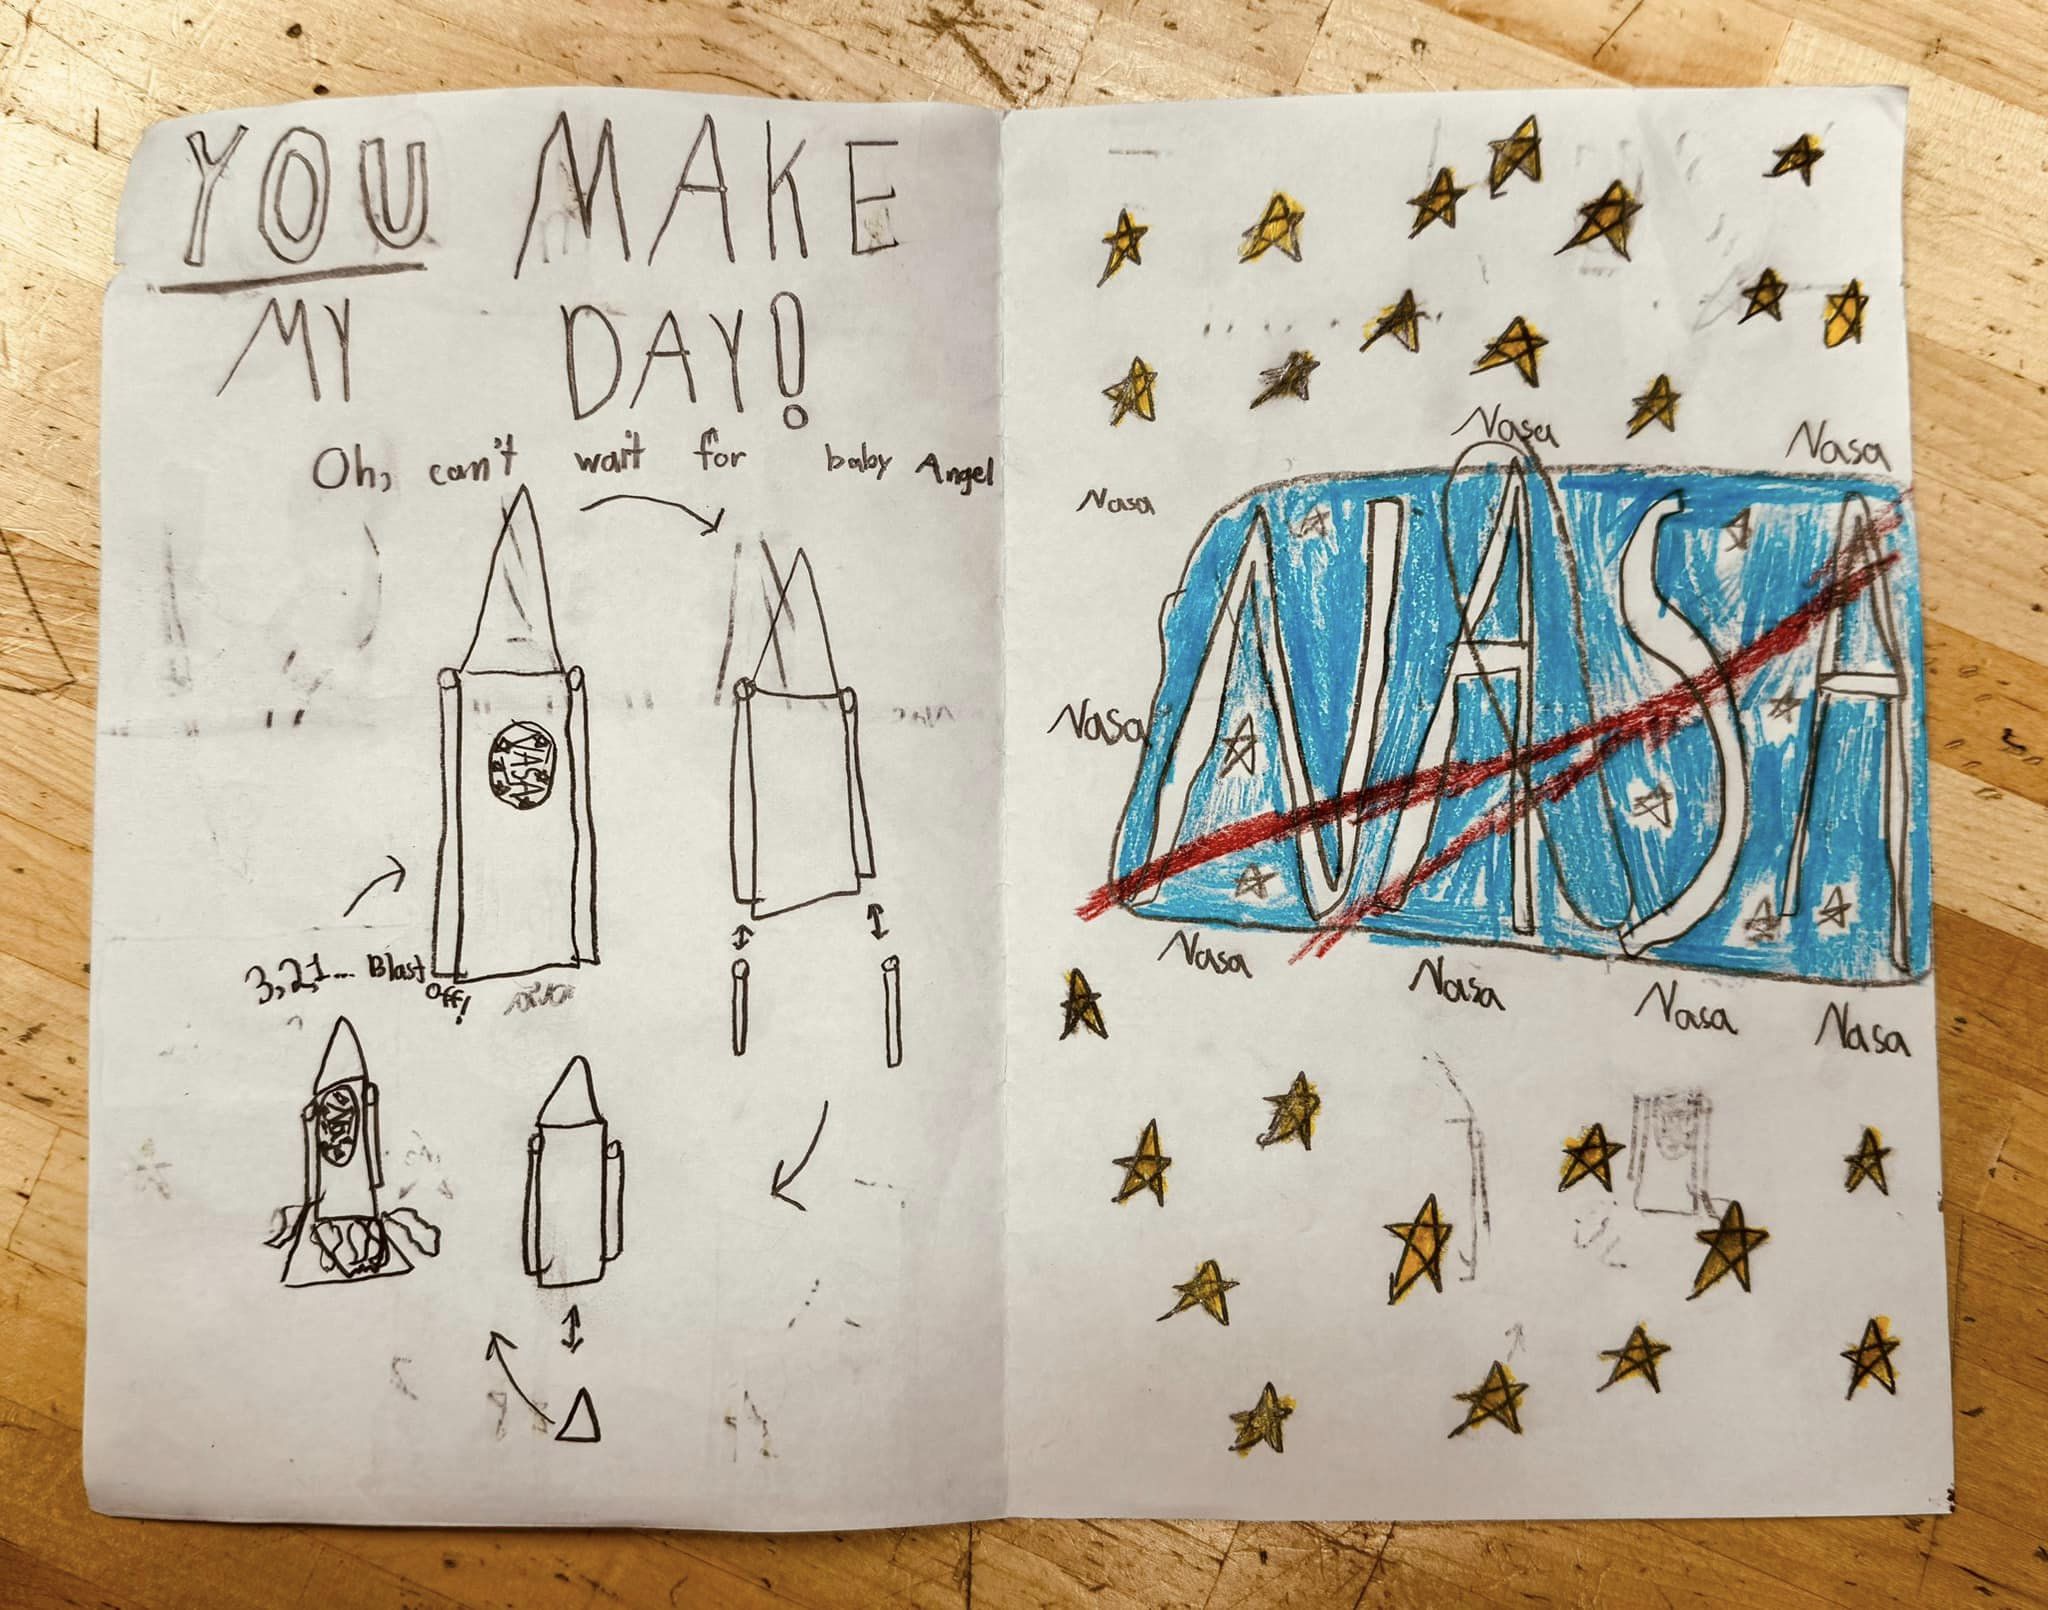 YOU MAKE
MY DAY!
Oh, can't wait for baby Angel
NASA
3,2,1... Blast
Off!
NASA
Nasa
Nasa
Nasa
NASA
Nasa
Nasa
Nasa
Nasa
Nasa